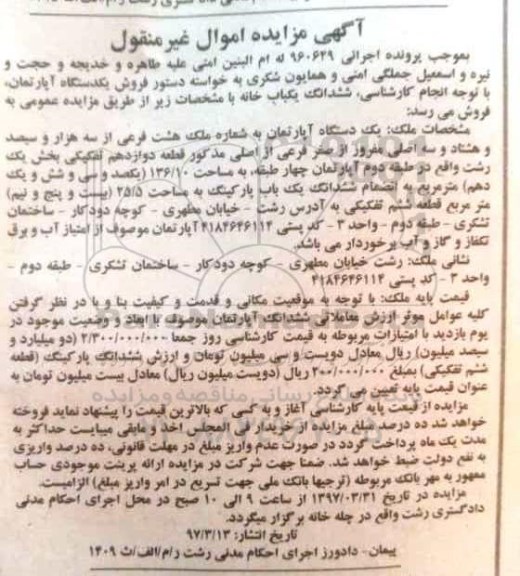 آگهی مزایده اموال غیرمنقول
بموجب پرونده اجرائی ۹۶۰۶۴۹ له ام البنین امنی علیه طاهره و خدیجه و حجت و
نیره و اسمعیل جملگی امنی و همایون شکری به خواسته دستور فروش یکدستگاه آپارتمان،
با توجه انجام کارشناسی، ششدانگ یکباب خانه با مشخصات زیر از طریق مزایده عمومی به
فروش می رسد:
مشخصات ملک: یک دستگاه آپارتمان به شماره ملک هشت فرعی از سه هزار و سیصد
و هشتاد و سه اصلی مفروز از صفر فرعی از اصلی مذکور قطعه دوازدهم تفکیکی بخش یک
رشت واقع در طبقه دوم آپارتمان چهار طبقه، به مساحت ۱۳۶/۱۰ (یکصد و سی و شش و یک
دهم) مترمربع به انضمام ششدانگ یک باب پارکینگ به مساحت ۲۵/۵ (بیست و پنج و نیم)
متر مربع قطعه ششم تفکیکی به آدرس رشت - خیابان مطهری - کوچه دودکار - ساختمان
تشکری - طبقه دوم - واحد ۳ - کد پستی ۴۱۸۴۶۴۶۱۱۴ آپارتمان موصوف از امتیاز آب و برق
تکفاز و گاز و آب برخوردار می باشد.
نشانی ملک: رشت خیابان مطهری - کوچه دودکار - ساختمان تشکری - طبقه دوم -
واحد ۳ - کد پستی ۴۱۸۴۶۴۶۱۱۴
قیمت پایه ملک: با توجه به موقعیت مکانی و قدمت و کیفیت بنا و با در نظر گرفتن
کلیه عوامل موثر ارزش معاملاتی ششدانگ آپارتمان موصوف با ابعاد و وضعیت موجود در
یوم بازدید با امتیازات مربوطه به قیمت کارشناسی روز جمعا ۲/۳۰۰/۰۰۰/۰۰۰ (دو میلیارد و
سیصد میلیون) ریال معادل دویست و سی میلیون تومان و ارزش ششدانگ پارکینگ (قطعه
ششم تفکیکی) بمبلغ ۲۰۰/۰۰۰/۰۰۰ ریال (دویست میلیون ریال) معادل بیست میلیون تومان به
عنوان قیمت پایه تعیین می گردد.
مزایده از قیمت پایه کارشناسی آغاز و به کسی که بالاترین قیمت را پیشنهاد نماید فروخته
خواهد شد ده درصد مبلغ مزایده از خریدار فی المجلس اخذ و مابقی میبایست حداکثر به
مدت یک ماه پرداخت گردد در صورت عدم واریز مبلغ در مهلت قانونی، ده درصد واریزی
به نفع دولت ضبط خواهد شد. ضمنا جهت شرکت در مزایده ارائه پرینت موجودی حساب
معهور به مهر بانک مربوطه (ترجیها بانک ملی جهت تسریع در امر واریز مبلغ) الزامیست.
مزایده در تاریخ ۱۳۹۷/۰۳/۳۱ از ساعت ۹ الی ۱۰ صبح در محل اجرای احکام مدنی
دادگستری رشت واقع در چله خانه برگزار میگردد.
تاریخ انتشار: ۹۷/۳/۱۳
پیمان- دادورز اجرای احکام مدنی رشت ر/م/الف/ث ۱۴۰۹